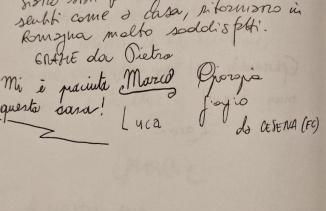 sentiti come a casa, ritorniamo in
Romagna molto soddisfatti.
GRAZIE da Pietro
Mi è piaciuta Marco Giorgia
questa casa! Giorgio
Luca da CESENA (FC)